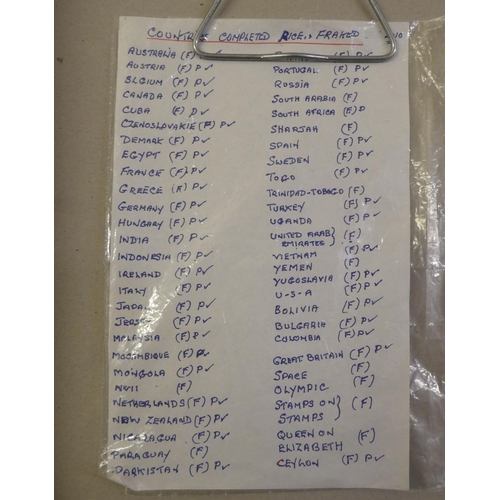 COUNTRIES COMPLETED RICE & FRAMED
AUSTRALIA (F) ✓
AUSTRIA (F) P✓
BLGIUM (F) P✓
CANADA (F) P✓
CUBA (F) P✓
CZENOSLAVAKIE (F) P✓
DEMARK (F) P✓
EGYPT (F) P✓
FRANCE (F) P✓
GREECE (F) P✓
GERMANY (F) P✓
HUNGARY (F) P✓
INDIA (F) P✓
INDONESIA (F) P✓
IRELAND (F) P✓
ITALY (F) P✓
JAPAN (F) P✓
JERSEY (F) P✓
MALAYSIA (F) P✓
MOCAMBIQUE (F) P✓
MONGOLA (F) P✓
(F)
NETHERLANDS (F) P✓
NEW ZEALAND (F) P✓
NICARAGUA (F) P✓
PARAGUAY (F)
PARKISTAN (F) P✓
(F) P✓
PORTUGAL (F) P✓
RUSSIA (F) P✓
SOUTH ARABIA (F)
SOUTH AFRICA (F) P
SHARJAH (F)
SPAIN (F) P✓
SWEDEN (F) P✓
TOGO (F) P✓
TRINIDAD-TOBOGO (F)
TURKEY (F) P✓
UGANDA (F) P✓
UNITED ARAB } (F)
EMIRATEE
VIETNAM (F) P✓
YEMEN (F)
YUGOSLAVIA (F) P✓
U-S-A (F) P✓
BOLIVIA (F) P✓
BULGARIA (F) P✓
COLOMBIA (F) P✓
GREAT BRITAIN (F) P✓
SPACE (F)
OLYMPIC (F)
STAMPS ON } (F)
STAMPS
QUEEN ON (F)
ELIZABETH
CEYLON (F) P✓